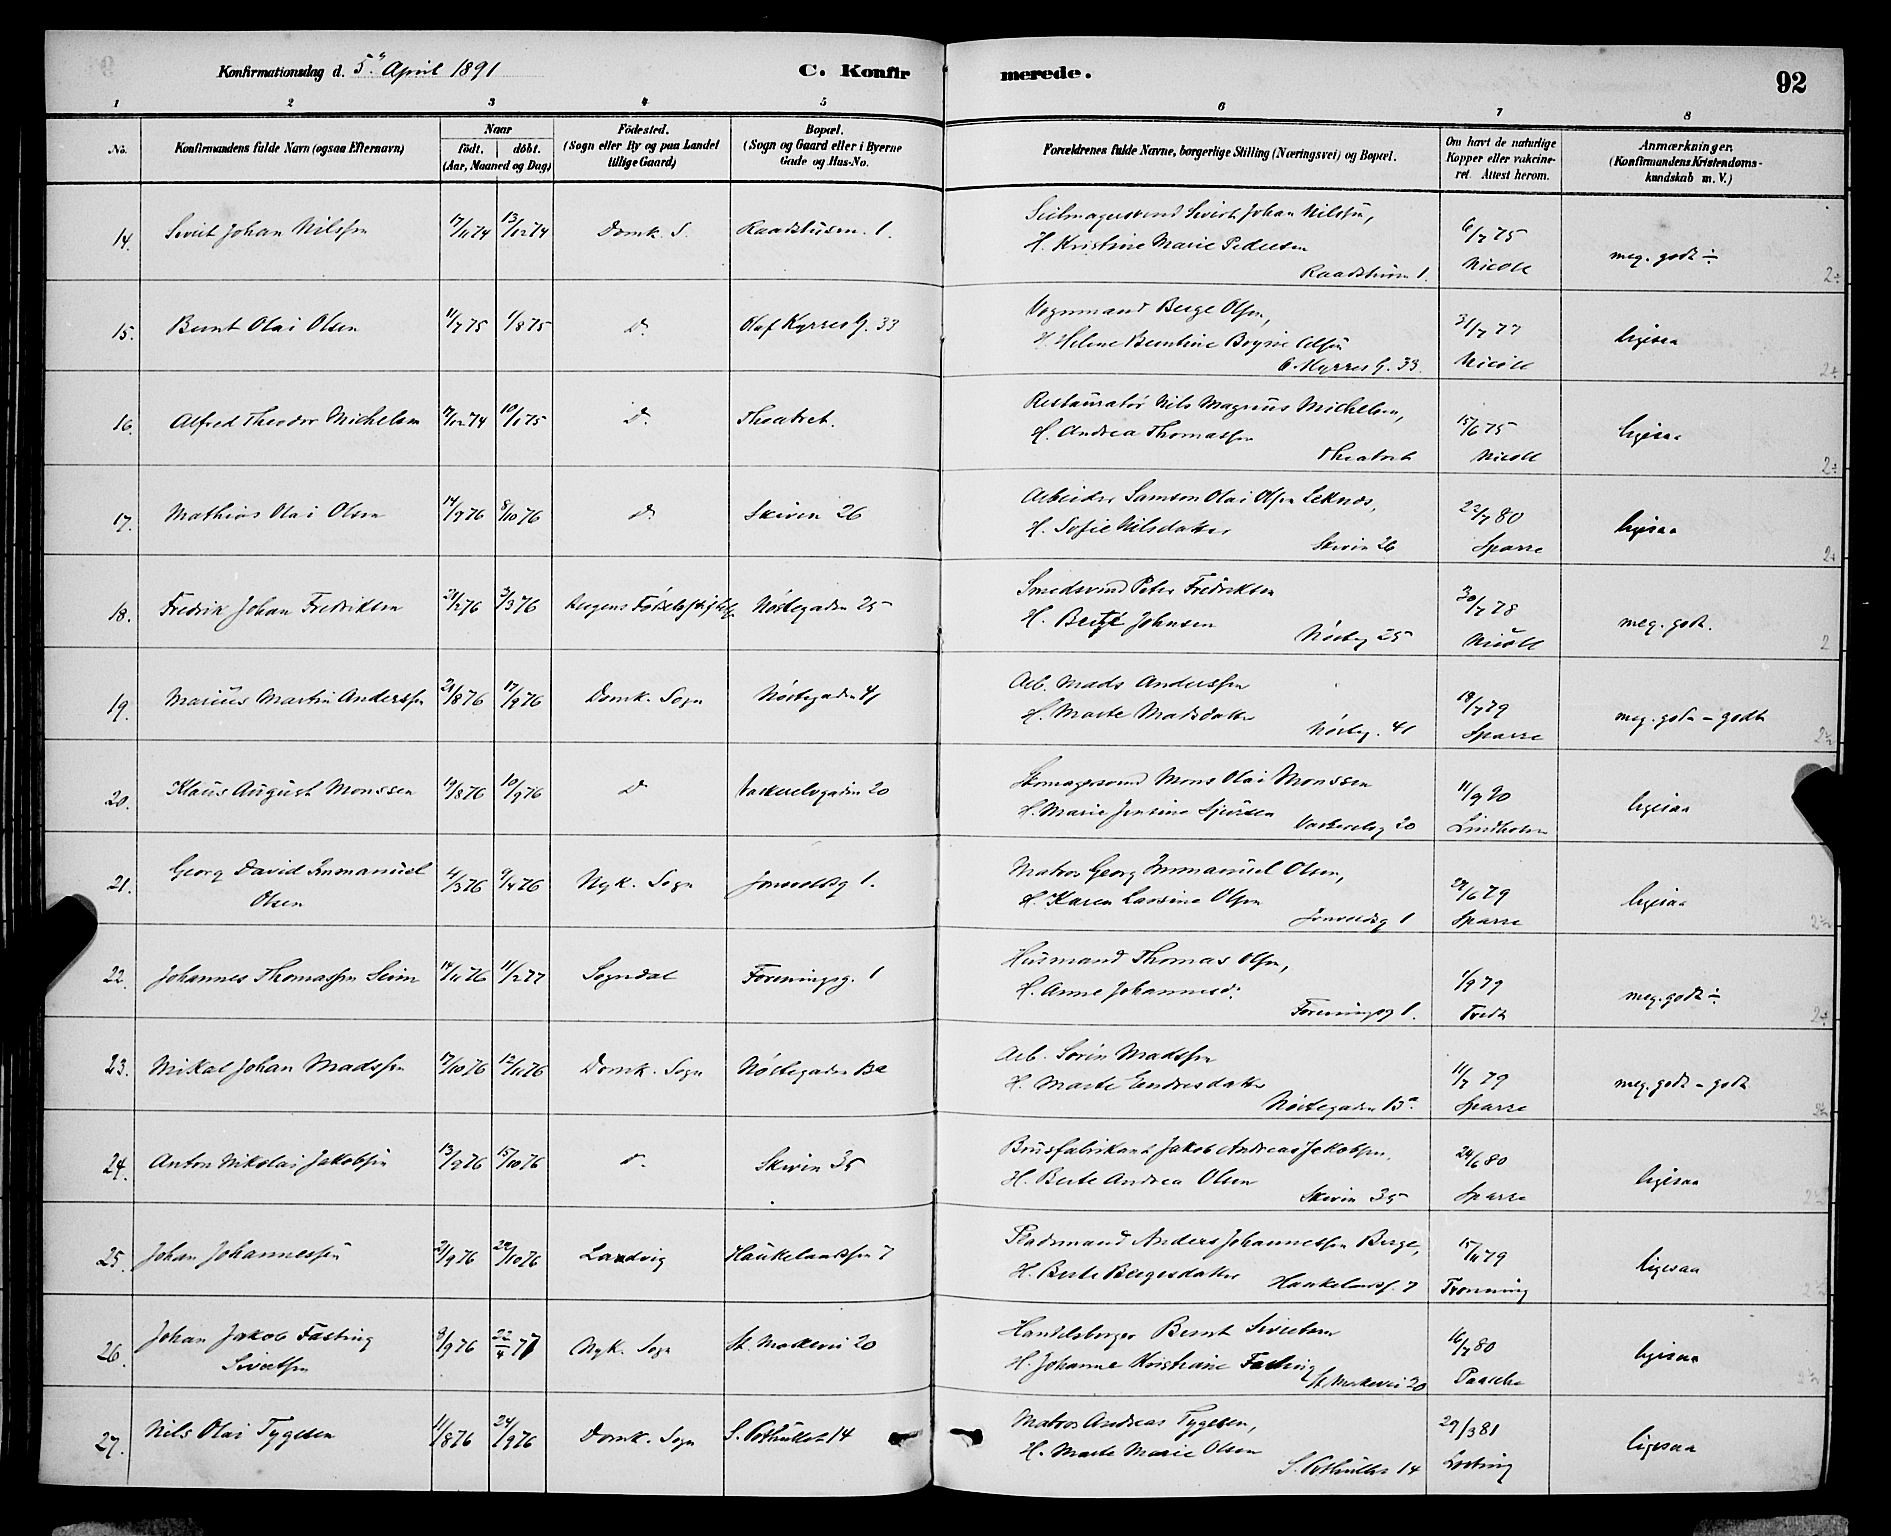 Konfirmationsdag d. 5. April 1891
C. Konfirmerede.
92
1 2 3 4 5 6 7 8
No.
Konfirmandens fulde Navn (ogsaa Efternavn)
Naar
födt. döbt.
(Aar, Maaned og Dag)
Födested.
(Sogn eller By og paa Landet
tillige Gaard)
Bopæl.
(Sogn og Gaard eller i Byerne
Gade og Hus-No.
Forældrenes fulde Navne, borgerlige Stilling (Næringsvei) og Bopæl.
Om havt de naturlige
Kopper eller vakcine-
ret. Attest herom.
Anmærkninger.
(Konfirmandens Kristendoms-
kundskab m. V.)
14. Sivert Johan Nilssen 17/11 74 13/12 74 Domk. S. Raadstuen. 1.
Seilmagersvend Sivert Johan Nilssen,
H. Kristine Marie Pedersen
Raadstuen 1.
6/7 75
Nicoll
meg. godt ÷
15. Bernt Olai Olsen 11/7 75 1/8 75 D. Olaf Kyrres G. 33
Vognmand Berge Olsen,
H. Helene Berntine Olsen
O. Kyrres G. 33.
31/7 77
Nicoll
ligesaa
16. Alfred Theodor Michelsen 17/12 74 10/1 75 D. Theatret.
Restauratør Nils Magnus Michelsen,
H. Andrea Thomassen
Theatret
15/6 75
Nicoll
ligesaa
17. Mathias Olai Olsen 14/9 76 8/10 76 D. Skiven 26
Arbeider Samson Olai Olsen Leknæs,
H. Sofie Nilsdatter
Skiven 26
22/7 80
Sparre
ligesaa
18. Fredrik Johan Fredriksen 21/2 76 3/3 76 Bergens Fødselsstiftelse Nöstegaden 25
Smedsvend Peter Fredriksen
H. Johnsen
Nösteg 25
30/7 78
Nicoll
meg. godt.
19. Marius Martin Anderssen 21/8 76 17/9 76 Domk. Sogn Nöstegaden 41
Arb. Mads Anderssen
H. Marte Madsdatter
Nösteg. 41
19/7 79
Sparre
meg. godt - godt
20. Klaus August Monssen 19/8 76 10/9 76 D Vaskerelvgaden 20
Skomagersvend Mons Olai Monssen
H. Marie Jensine Sjursen
Vaskerelvg 20
11/9 90
Lindholm
ligesaa
21. Georg David Immanuel
Olsen 4/3 76 9/4 76 Nyk. Sogn Jonsvoldsg 1.
Matros Georg Immanuel Olsen,
H. Karen Lavsine Olsen
Jonsvoldsg 1
27/6 79
Sparre
ligesaa
22. Johannes Thomassen Seim 14/11 76 11/2 77 Sogndal Foreningsg. 1
Husmand Thomas Olsen,
H. Anne Johannesd.
Foreningsg 1.
1/9 79
Tvedt
meg. godt ÷
23. Mikal Johan Madssen 17/10 76 12/11 76 Domk. Sogn Nöstegaden
Arb. Sörin Madssen
H. Marte Endresdatter
Nöstegaden
11/7 79
Sparre
meg. godt - godt
24. Anton Nikolai Jakobsen 13/9 76 15/10 76 D. Skiven 35
Brusfabrikant Jakob Andreas Jakobsen,
H. Berte Andrea Olsen
Skiven 35
24/6 80
Sparre
ligesaa
25. Johan Johannessen 21/9 76 22/10 76 Landvig Haukelandsveien 7
Pladsmand Anders Johannessen Berge,
H. Berte Bergesdatter
Haukelandsv. 7
15/11 79
Tronning
ligesaa
26. Johan Jakob Fasting
Sivertsen 8/9 76 22/4 77 Nyk. Sogn St. Markevei 20
Handelsborger Bernt Sivertsen
H. Johanne Kristiane Fasting
St Markevei 20
16/7 80
Paasche
ligesaa
27. Nils Olai Tygesen 11/8 76 24/9 76 Domk. Sogn S. Osthullet 14
Matros Andreas Tygesen,
H. Marte Marie Olsen
S. Osthullet 14
29/3 81
ligesaa